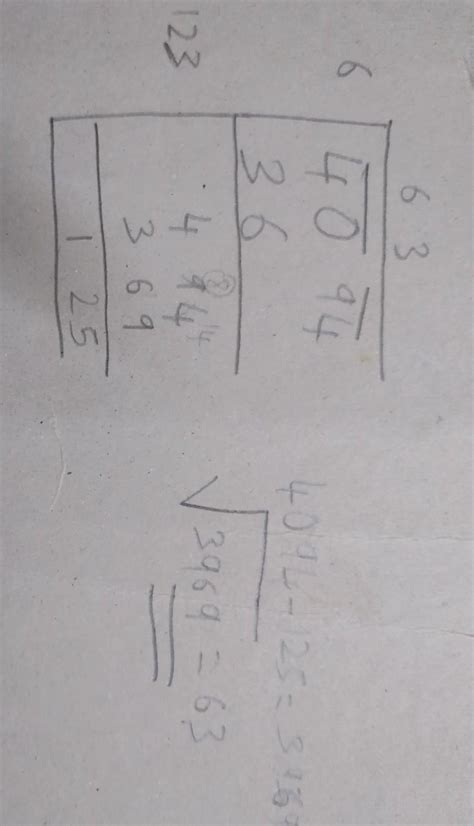 6 3
6 40 94
36
123 4 9 4
⑧ 14
3 69
1 25
4094 - 125 = 3969
√3969 = 63